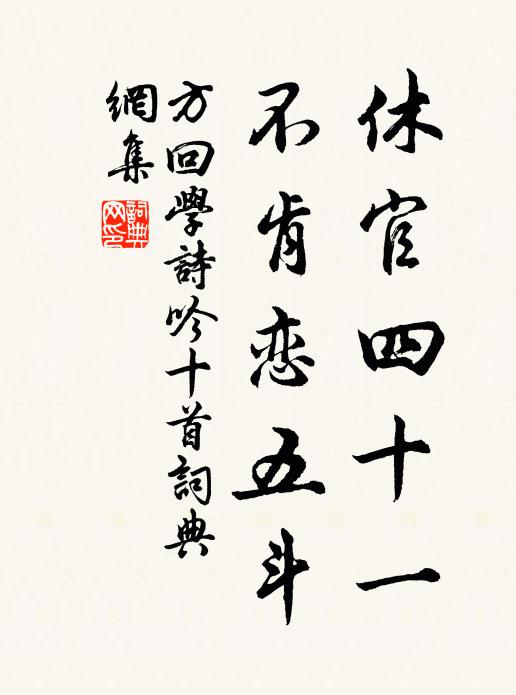 休官四十一
不肯恋五斗
方回學詩吟十首詞典
網集
詞典网印